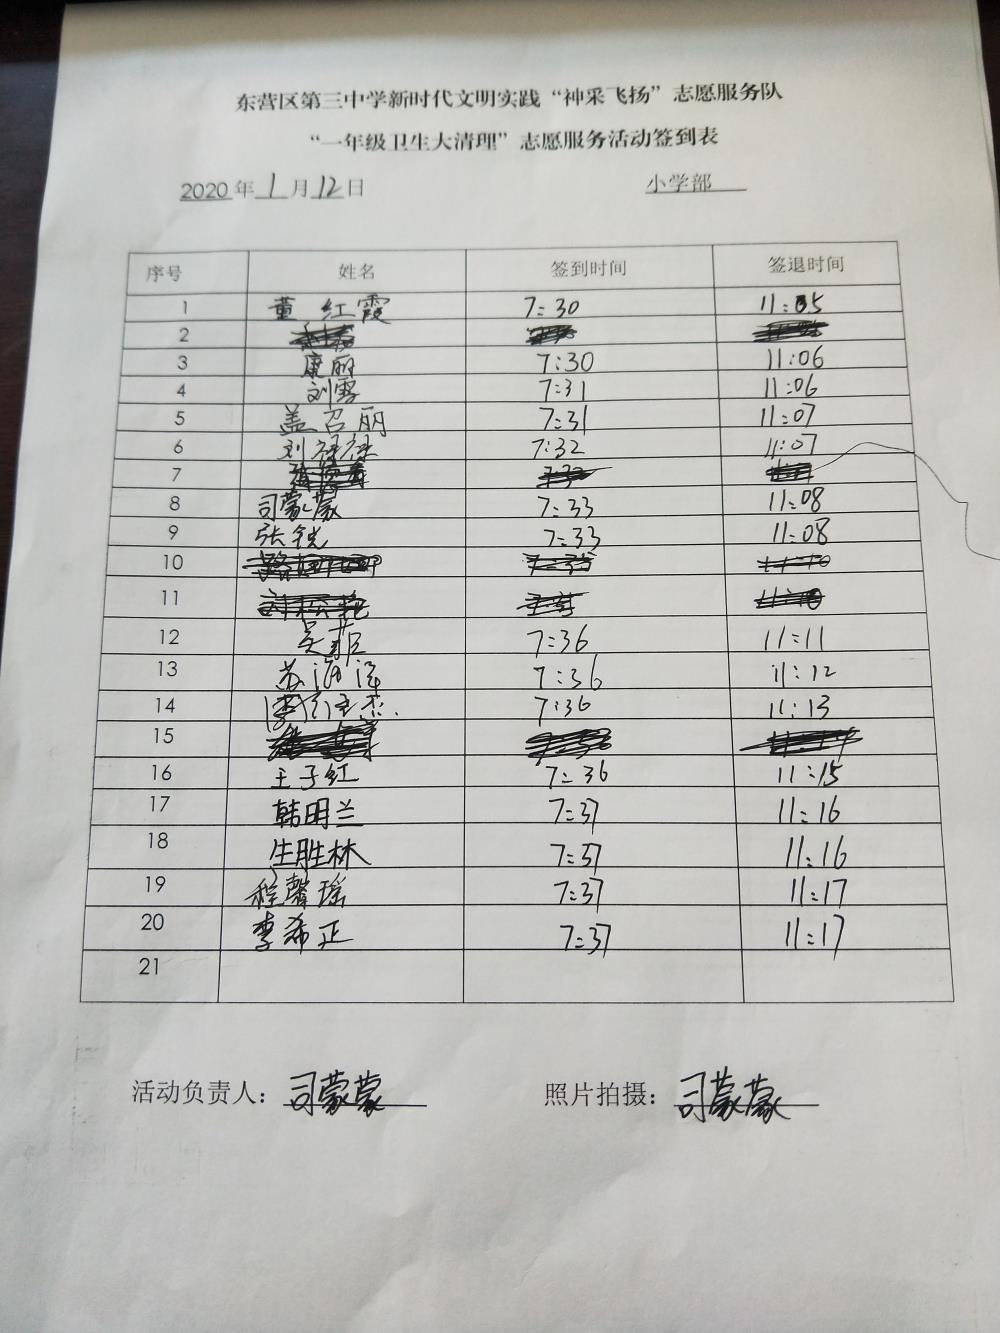 东营区第三中学新时代文明实践“神采飞扬”志愿服务队
“一年级卫生大清理”志愿服务活动签到表
2020年1月12日 小学部
序号 姓名 签到时间 签退时间
1 董红霞 7:30 11:05
2
3 康丽 7:30 11:06
4 刘雪 7:31 11:06
5 盖召丽 7:31 11:07
6 刘禄禄 7:32 11:07
7
8 司蒙蒙 7:33 11:08
9 张锐 7:33 11:08
10
11
12 吴菲 7:36 11:11
13 苏海泽 7:36 11:12
14 7:36 11:13
15
16 王子红 7:36 11:15
17 韩明兰 7:37 11:16
18 生胜林 7:37 11:16
19 程馨瑶 7:37 11:17
20 李希正 7:37 11:17
21
活动负责人：司蒙蒙 照片拍摄：司蒙蒙